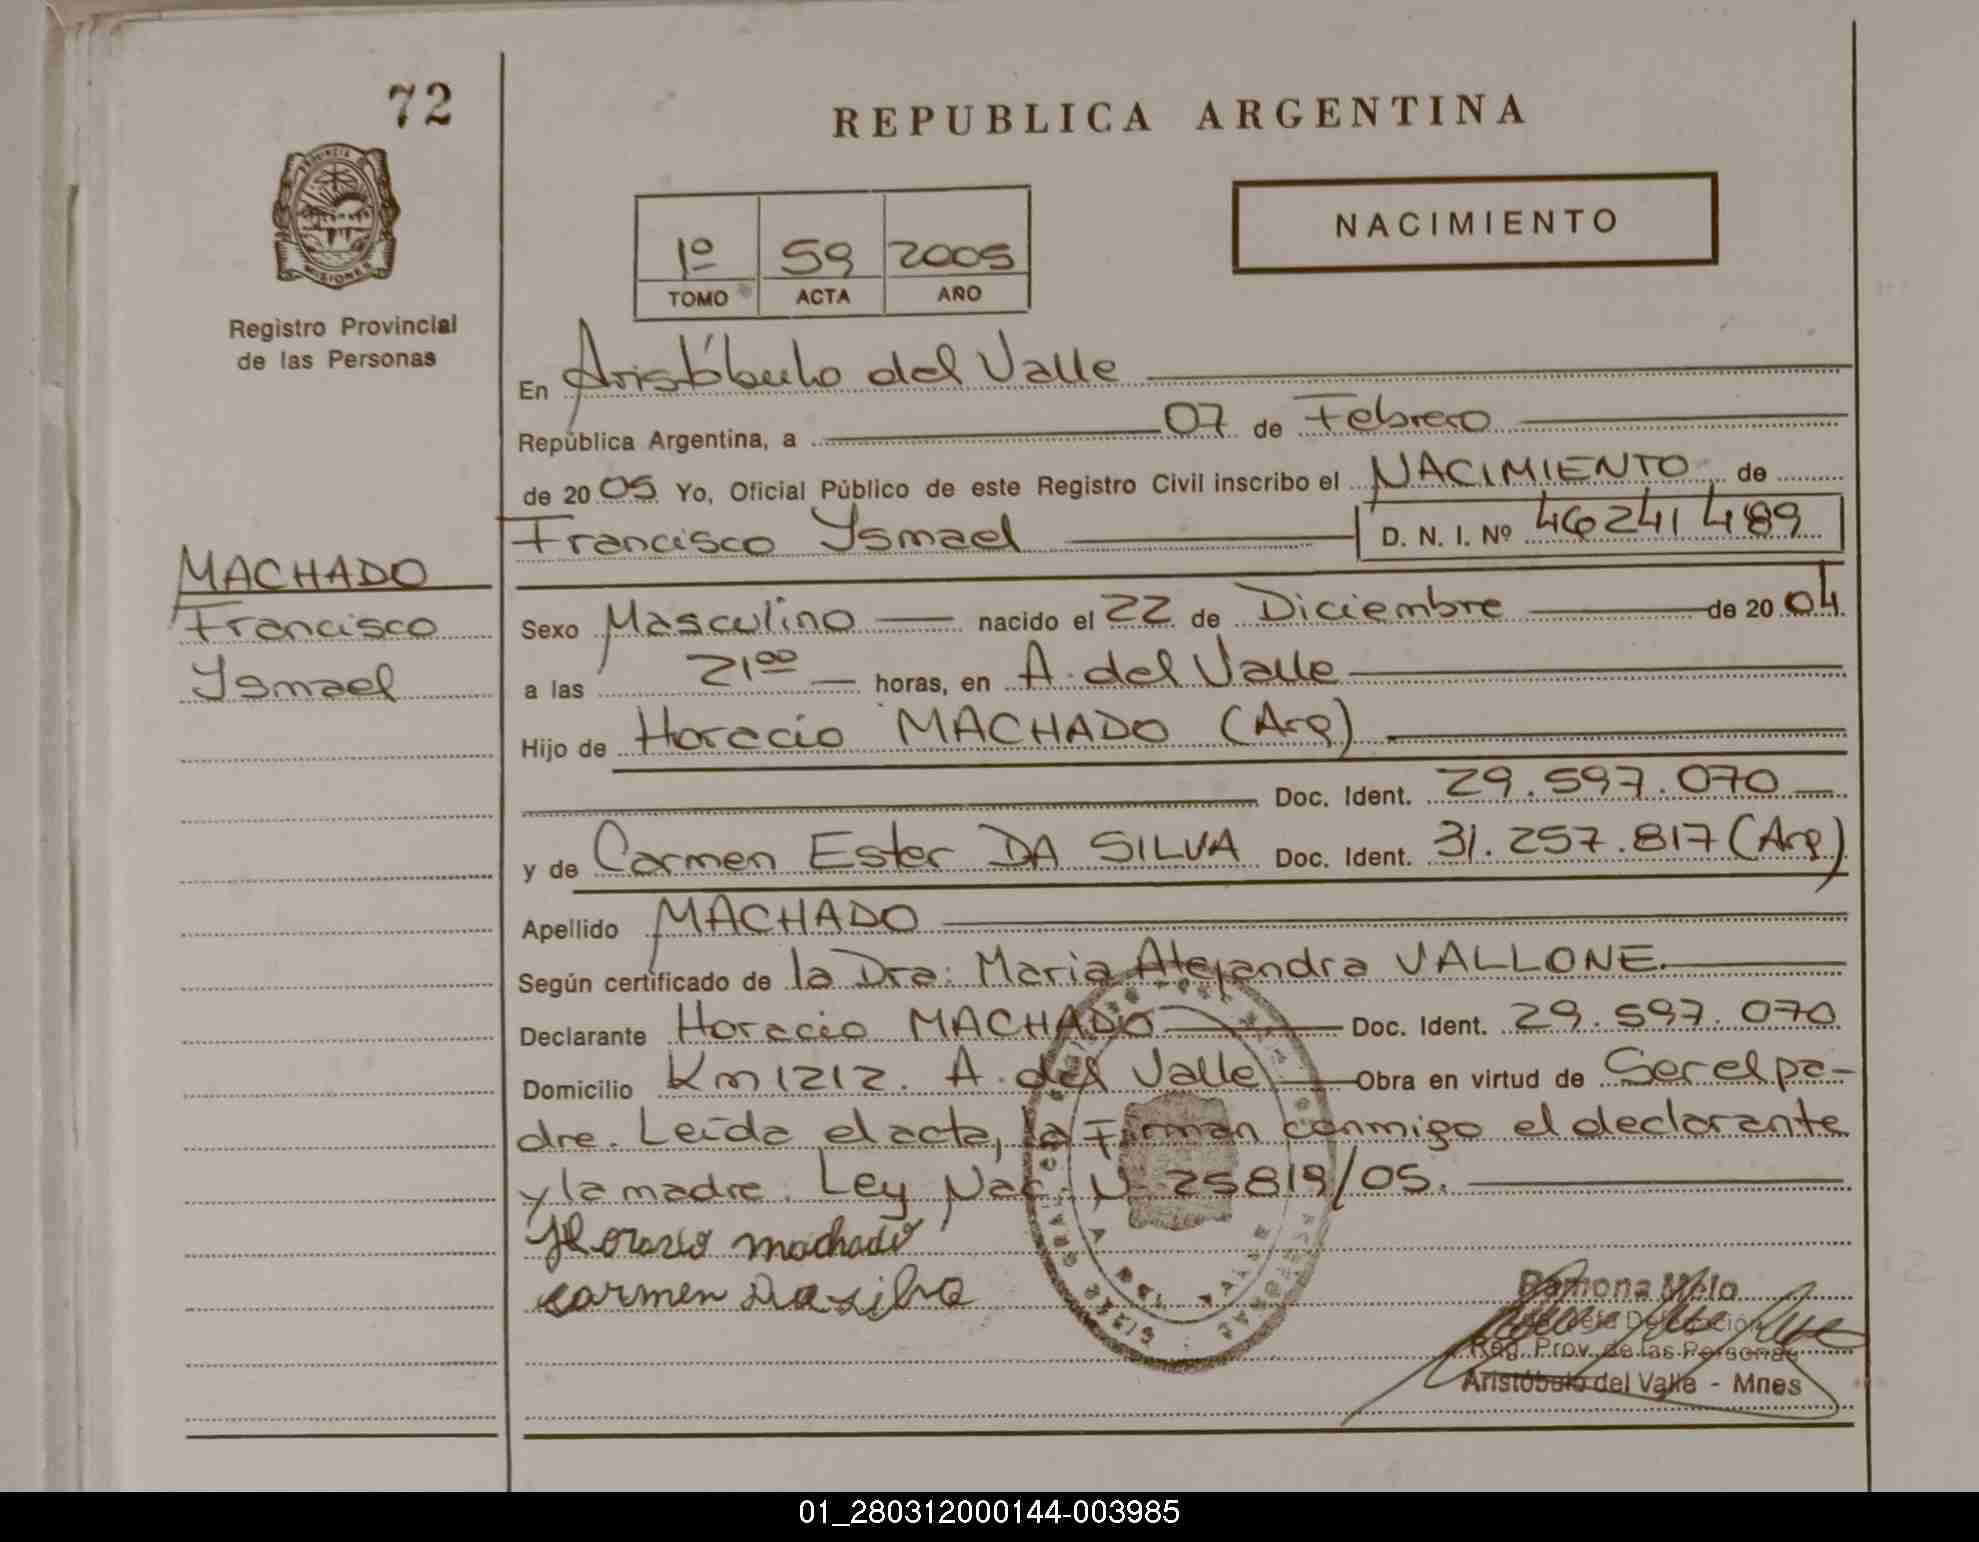 72
REPUBLICA ARGENTINA
PROVINCIA DE
MISIONES
Registro Provincial
de las Personas
1º 59 2005
TOMO ACTA AÑO
NACIMIENTO
En Aristóbulo del Valle
República Argentina, a 07 de Febrero
de 2005 Yo, Oficial Público de este Registro Civil inscribo el NACIMIENTO de
Francisco Ysmael D. N. I. Nº 46241489
MACHADO
Francisco
Ysmael
Sexo Masculino nacido el 22 de Diciembre de 2004
a las 21⁰⁰ horas, en A. del Valle
Hijo de Horacio MACHADO (Arg)
Doc. Ident. 29.597.070
y de Carmen Ester DA SILVA Doc. Ident. 31.257.817 (Arg)
Apellido MACHADO
Según certificado de la Dra: Maria Alejandra VALLONE.
Declarante Horacio MACHADO Doc. Ident. 29.597.070
Domicilio Km 1212. A. del Valle Obra en virtud de Ser el pa-
dre. Leída el acta, la Firman conmigo el declarante
y la madre. Ley Nac. Nº 25819/05.
Horacio machado
carmen Da silva
Ramona Melo
Delegación
Reg. Prov. de las Personas
Aristóbulo del Valle - Mnes
01_280312000144-003985